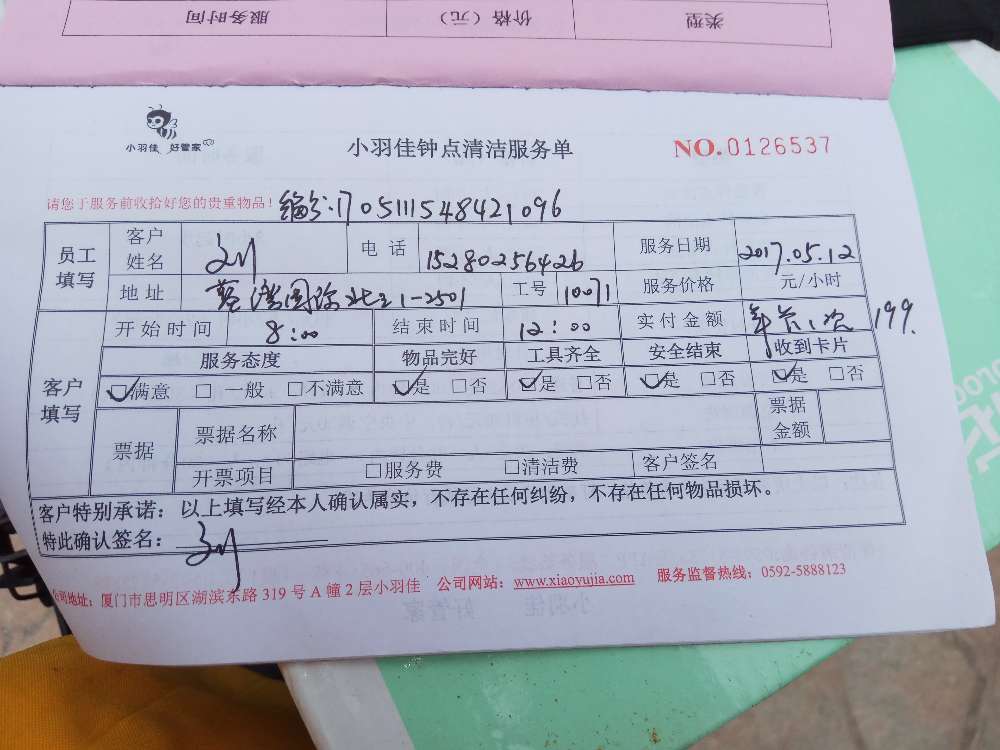 服务时间 价格（元） 类型
小羽佳 好管家
小羽佳钟点清洁服务单
NO.0126537
请您于服务前收拾好您的贵重物品！ 编号:1705111548421096
员工填写 客户姓名 刘 电话 15280256426 服务日期 2017.05.12
地址 国际北区1-2501 工号 10071 服务价格 元/小时
客户填写 开始时间 8:00 结束时间 12:00 实付金额 年卡1次 199.
服务态度 物品完好 工具齐全 安全结束 收到卡片
☑满意 □一般 □不满意 ☑是 □否 ☑是 □否 ☑是 □否 ☑是 □否
票据 票据名称 票据金额
开票项目 □服务费 □清洁费 客户签名
客户特别承诺：以上填写经本人确认属实，不存在任何纠纷，不存在任何物品损坏。
特此确认签名：刘
公司地址：厦门市思明区湖滨东路319号A幢2层小羽佳 公司网站：www.xiaoyujia.com 服务监督热线：0592-5888123